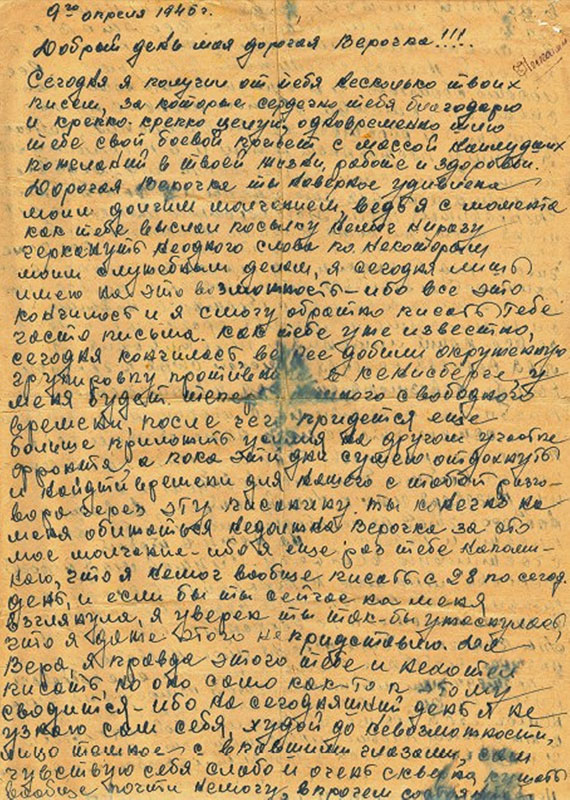 9го апреля 1945 г.
Добрый день моя дорогая Верочка!!!!
Сегодня я получил от тебя несколько твоих
писем, за которые сердечно тебя благодарю
и крепко крепко целую, одновременно шлю
тебе свой боевой привет с массой наилудших
пожеланий в твоей жизни, работе и здоровьи.
Дорогая Верочка ты наверное удивлена
моим долгим молчанием, ведь я с момента
как тебе выслал посылку немог ниразу
черкануть неодного слова по некоторым
моим служебным делам, я сегодня лишь
имею на это возможность - ибо все это
кончилось и я смогу обратно писать тебе
часто письма. Как тебе уже известно,
сегодня кончилась добили окруженную
групировку в Кенисберге, у
меня будет тепер много свободного
времени, после чего придется еще
больше приложить усилия на другом участке
фронта, а пока эти дни сумею отдохнуть
и найти времени для нашего с тобой разго-
вора через эту писанину. Ты конечно на
меня обижаться недолжна Верочка за это
мое молчание - ибо я еще раз тебе напоми-
наю, что я немог вообще писать с 28 по сегод.
день, и если бы ты сейчас на меня
взглянула, я уверен ты так-бы ужаснулась,
что я даже этого не придставлю.
Вера, я правда этого тебе и нехотел
писать, но оно само как-то к этому
сводится - ибо на сегодняшний день я не
узнаю сам себя, худой до невозможности,
лицо темное с впавшими глазами, сам
чувствую себя слабо и очень скверно, кушать
вообще почти немогу, впрочем состояние